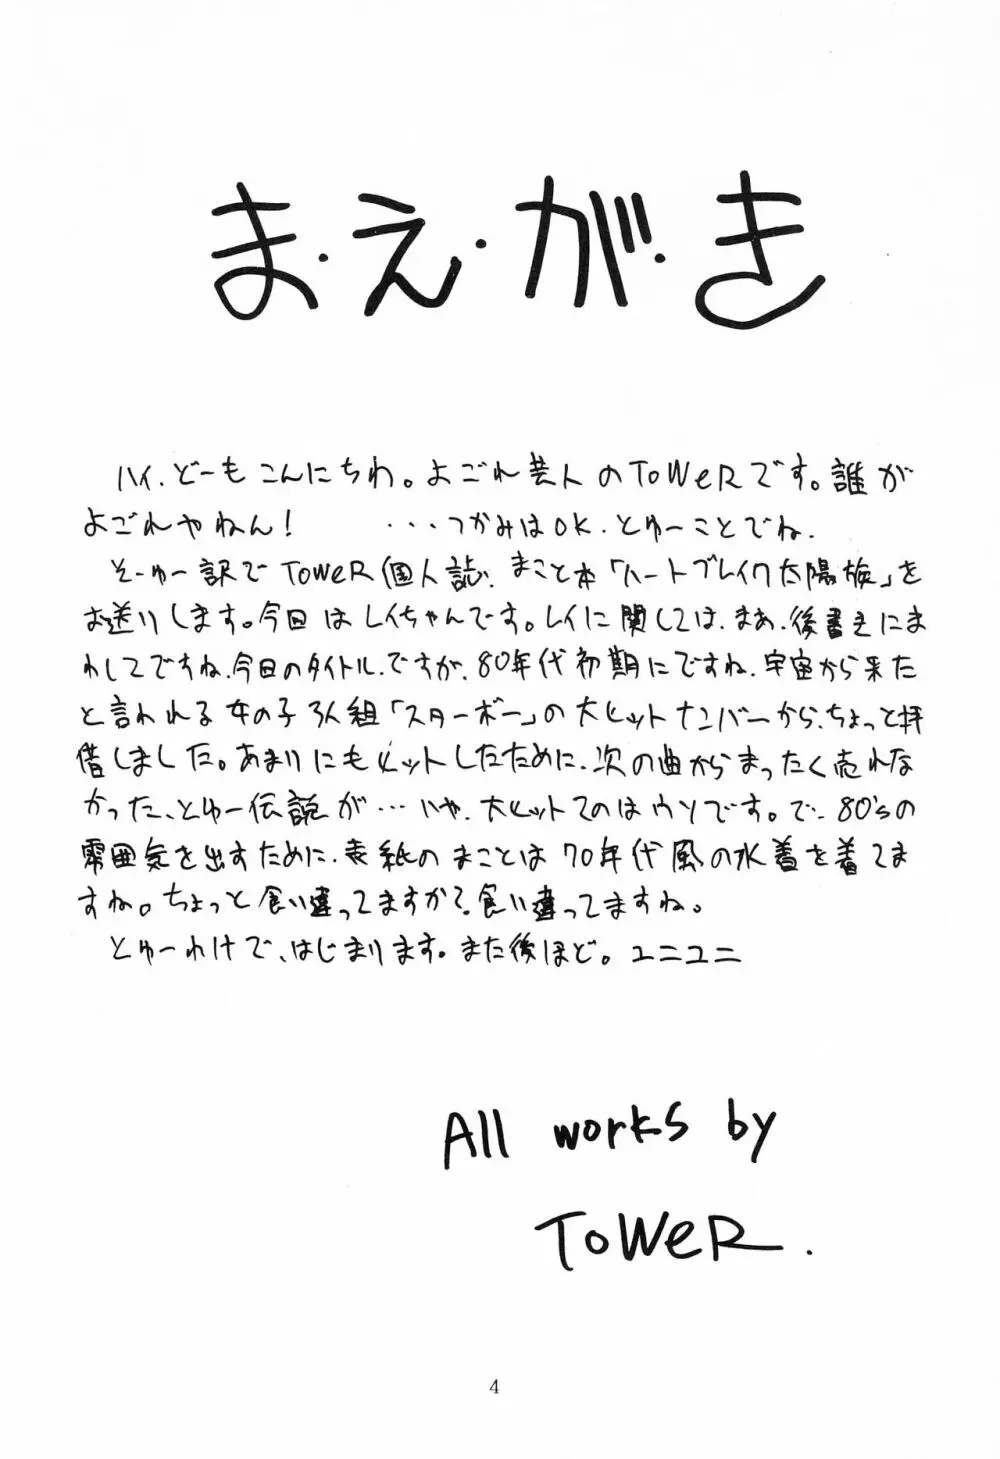 ま・え・が・き
ハイ、どーもこんにちわ。よごれ芸人のToWeRです。誰が
よごれやねん! ・・・つかみはOK、とゆーことでね、
そーゆー訳でToWeR個人誌、まこと本「ハートブレイク太陽族」を
お送りします。今回はレイちゃんです。レイに関しては、まぁ、後書きにま
わしてですね、今日のタイトル、ですが、80年代初期にですね、宇宙から来た
と言われる女の子3人組「スターボー」の大ヒットナンバーから、ちょっと拝
借しました。あまりにもヒットしたために、次の曲からまったく売れな
かった、とゆー伝説が…いや、大ヒットてのはウソです。で、80'sの
雰囲気を出すために、表紙のまことは70年代風の水着を着てま
すね。ちょっと食い違ってますか?食い違ってますね。
とゆーわけで、はじまります。また後ほど。ユニユニ
All works by
ToWeR.
4